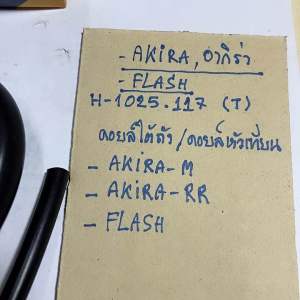 - AKIRA, อากิร่า
- FLASH
H-1025.117 (T)
คอยล์ใต้ถัง/คอยล์หัวเทียน
- AKIRA-M
- AKIRA-RR
- FLASH